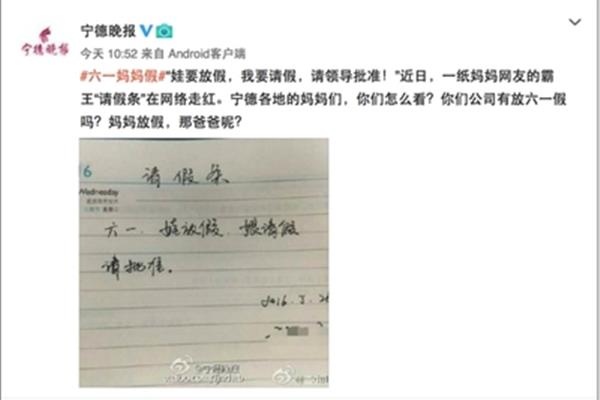 宁德晚报
宁德晚报
今天 10:52 来自 Android客户端
#六一妈妈假#"娃要放假，我要请假，请领导批准！"近日，一纸妈妈网友的霸
王"请假条"在网络走红。宁德各地的妈妈们，你们怎么看？你们公司有放六一假
吗？妈妈放假，那爸爸呢？
6
Wednesday
请假条
六一、娃放假、娘请假
请批准。